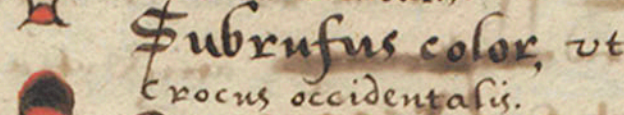 Subrufus color, vt
crocus occidentalis.